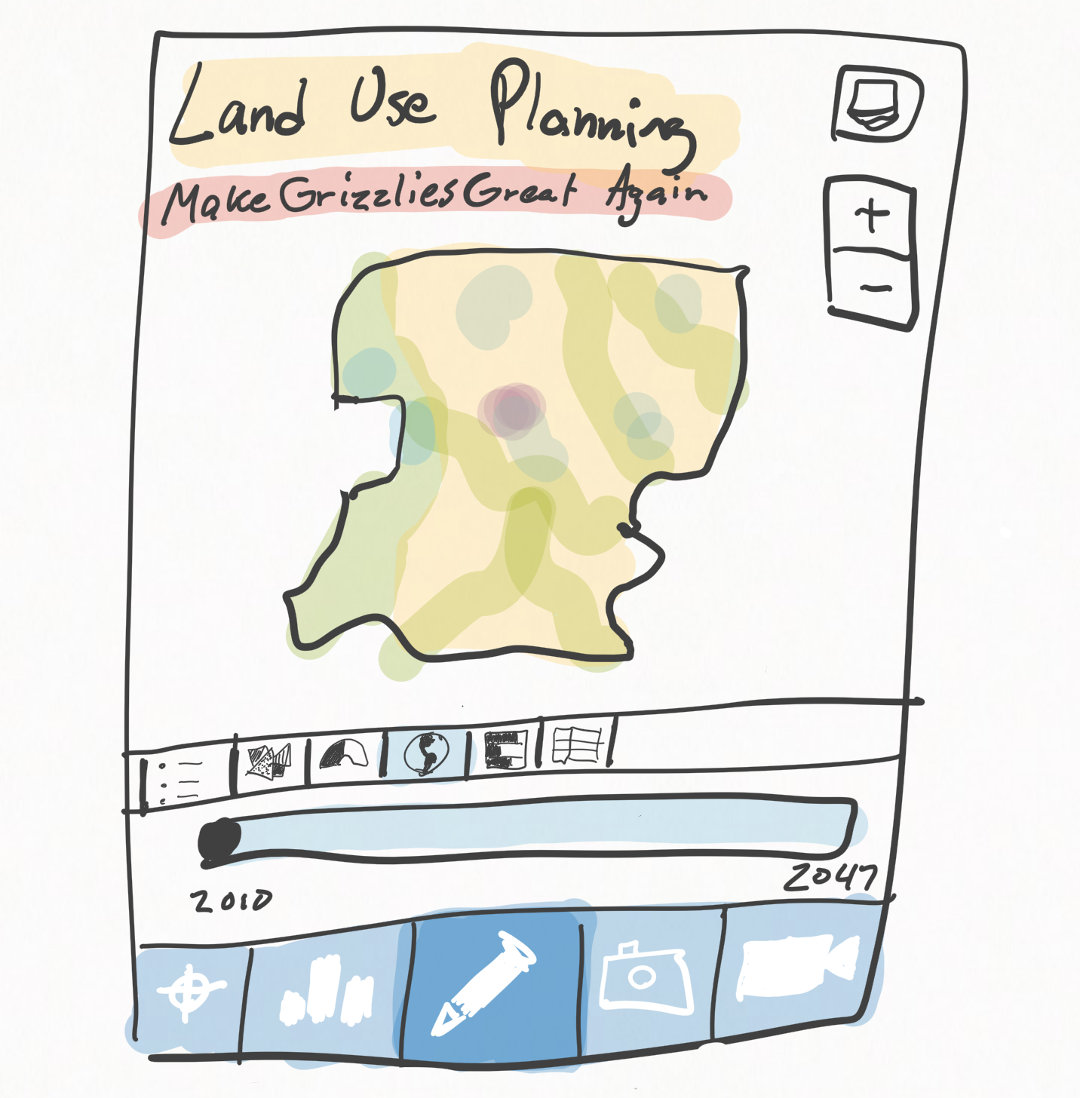 Land Use Planning
Make Grizzlies Great Again
+
−
2010
2047